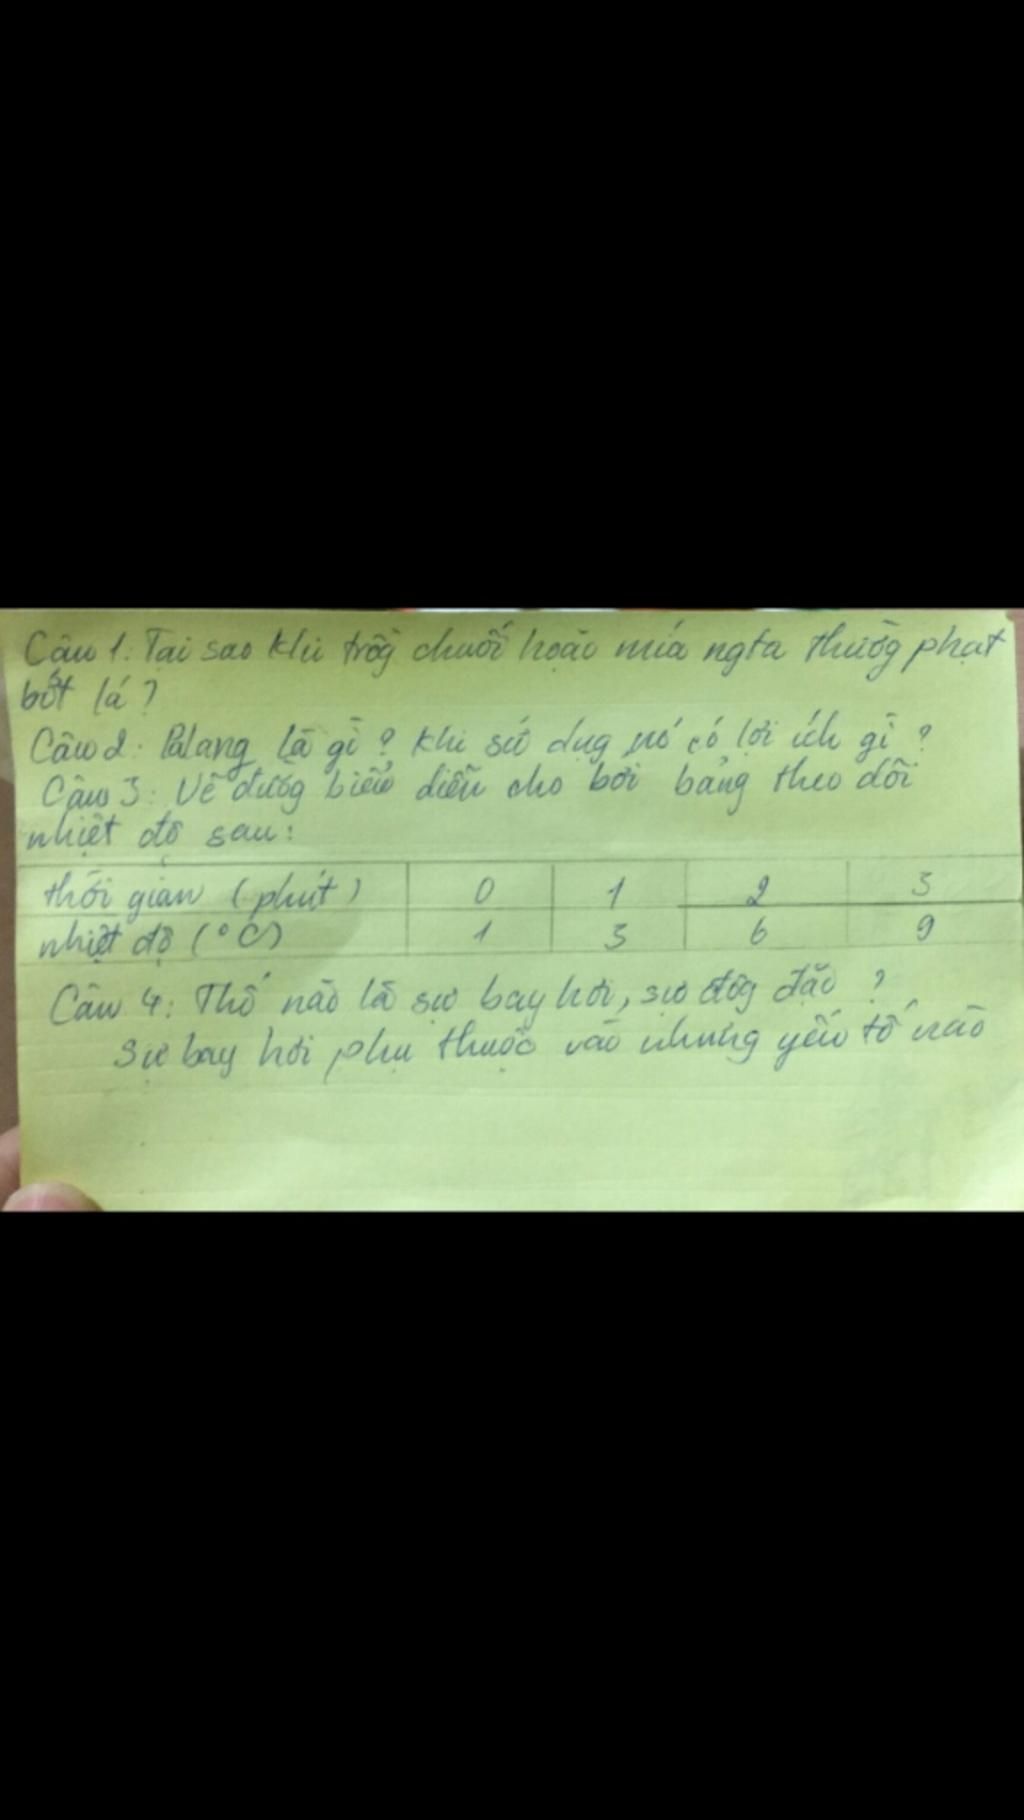 Câu 1: Tại sao khi trồg chuối hoặc mía ngta thườg phạt
bớt lá ?
Câu 2: Palang là gì ? Khi sử dụg nó có lợi ích gì ?
Câu 3: Vẽ đườg biểu diễn cho bởi bảng theo dõi
nhiệt độ sau :
thời gian (phút) 0 1 2 3
nhiệt độ (°C) 1 3 6 9
Câu 4: Thế nào là sự bay hơi, sự đôg đặc ?
Sự bay hơi phụ thuộc vào những yếu tố nào